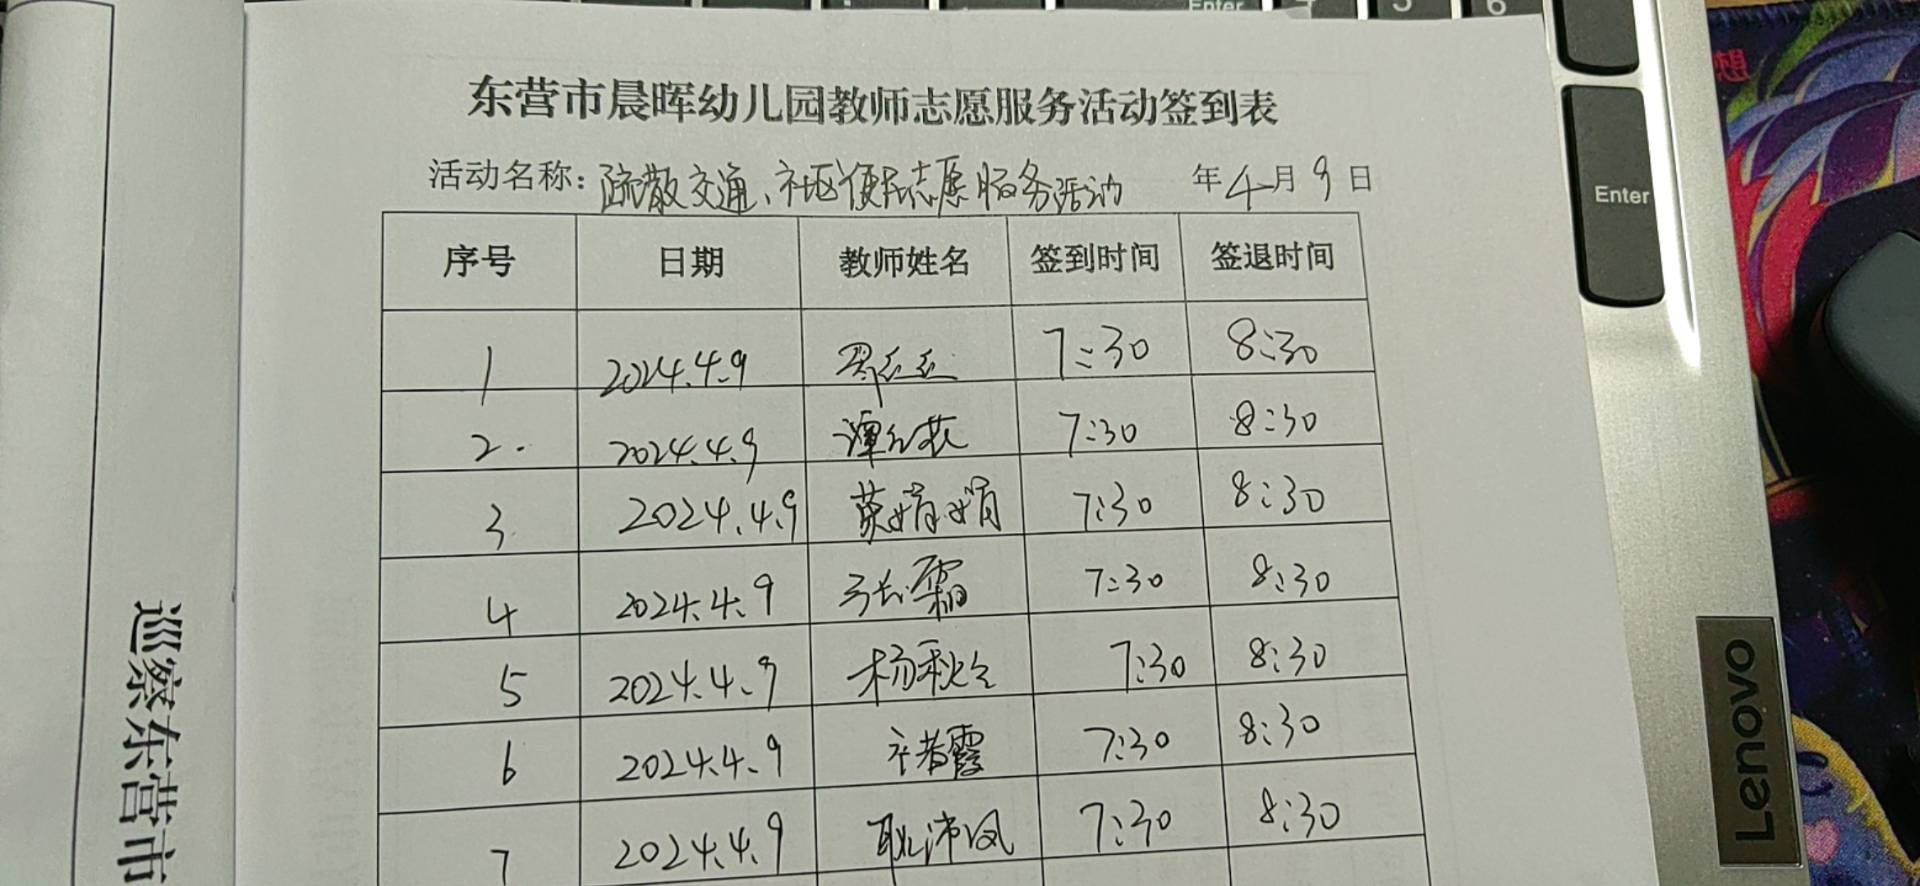 东营市晨晖幼儿园教师志愿服务活动签到表
活动名称：疏散交通、社区便民志愿服务活动 年4月9日
序号 日期 教师姓名 签到时间 签退时间
1 2024.4.9 7:30 8:30
2. 2024.4.9 谭红 7:30 8:30
3 2024.4.9 莫娟娟 7:30 8:30
4 2024.4.9 张霜 7:30 8:30
5 2024.4.9 杨秋 7:30 8:30
6 2024.4.9 霞 7:30 8:30
7 2024.4.9 耿沛凤 7:30 8:30
巡察东营市
Enter
5
6
Enter
Lenovo